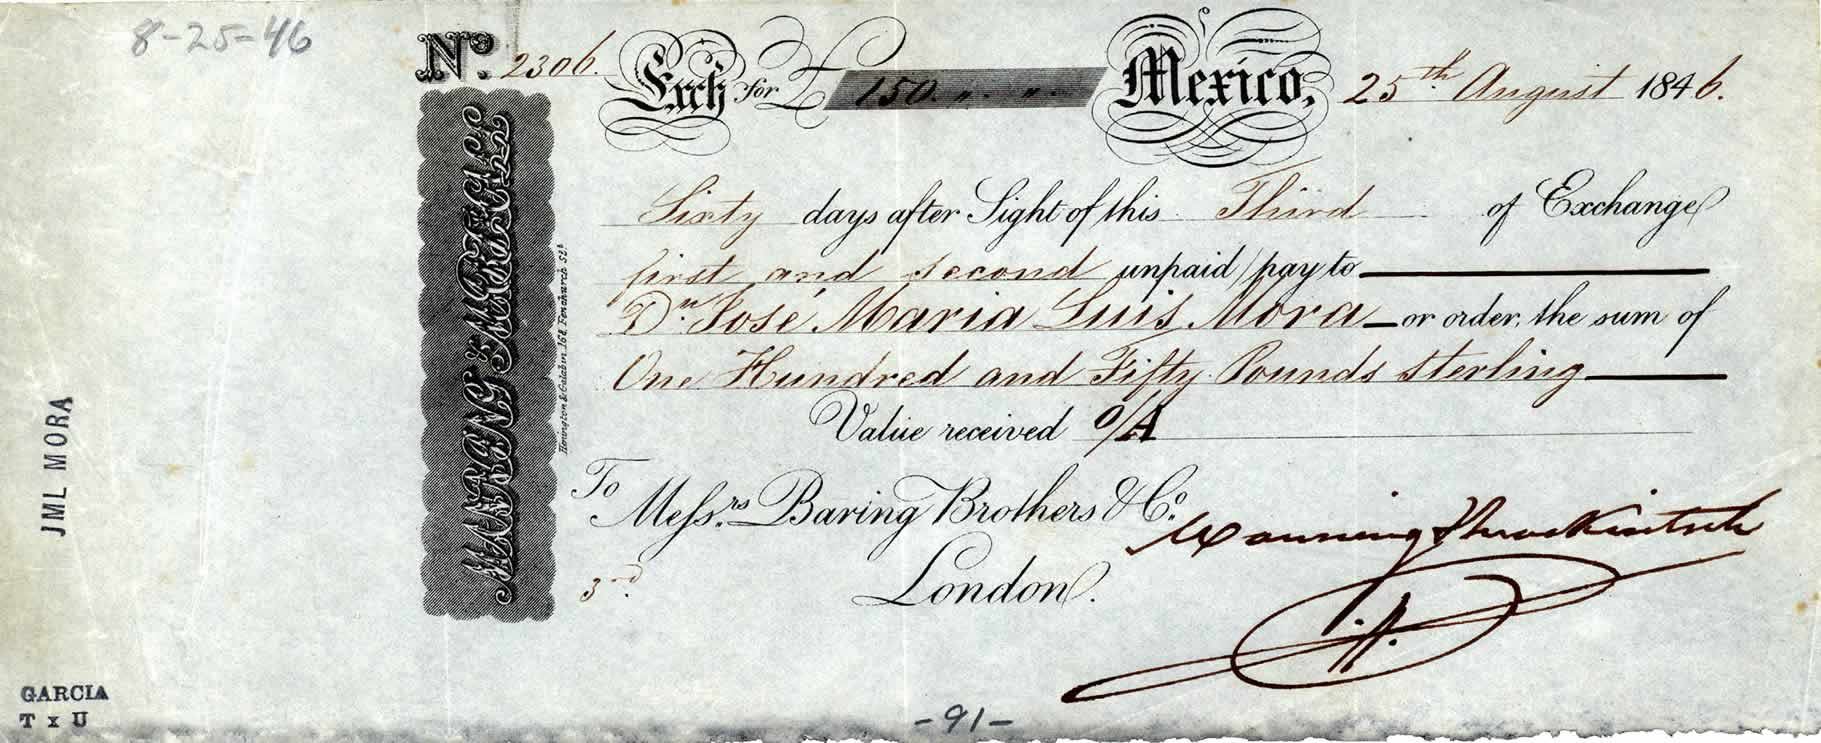 8-25-46
No. 2306. Exch for £ 150. " " Mexico, 25th August 1846.
Sixty days after Sight of this Third of Exchange
first and second unpaid pay to
Dn José Maria Luis Mora or order, the sum of
One Hundred and Fifty Pounds Sterling
Value received o/A
To
Messrs. Baring Brothers & Co.
London.
3rd.
Manning & Mackintosh
MANNING & MARSHALL
JML MORA
GARCIA
T x U
-91-